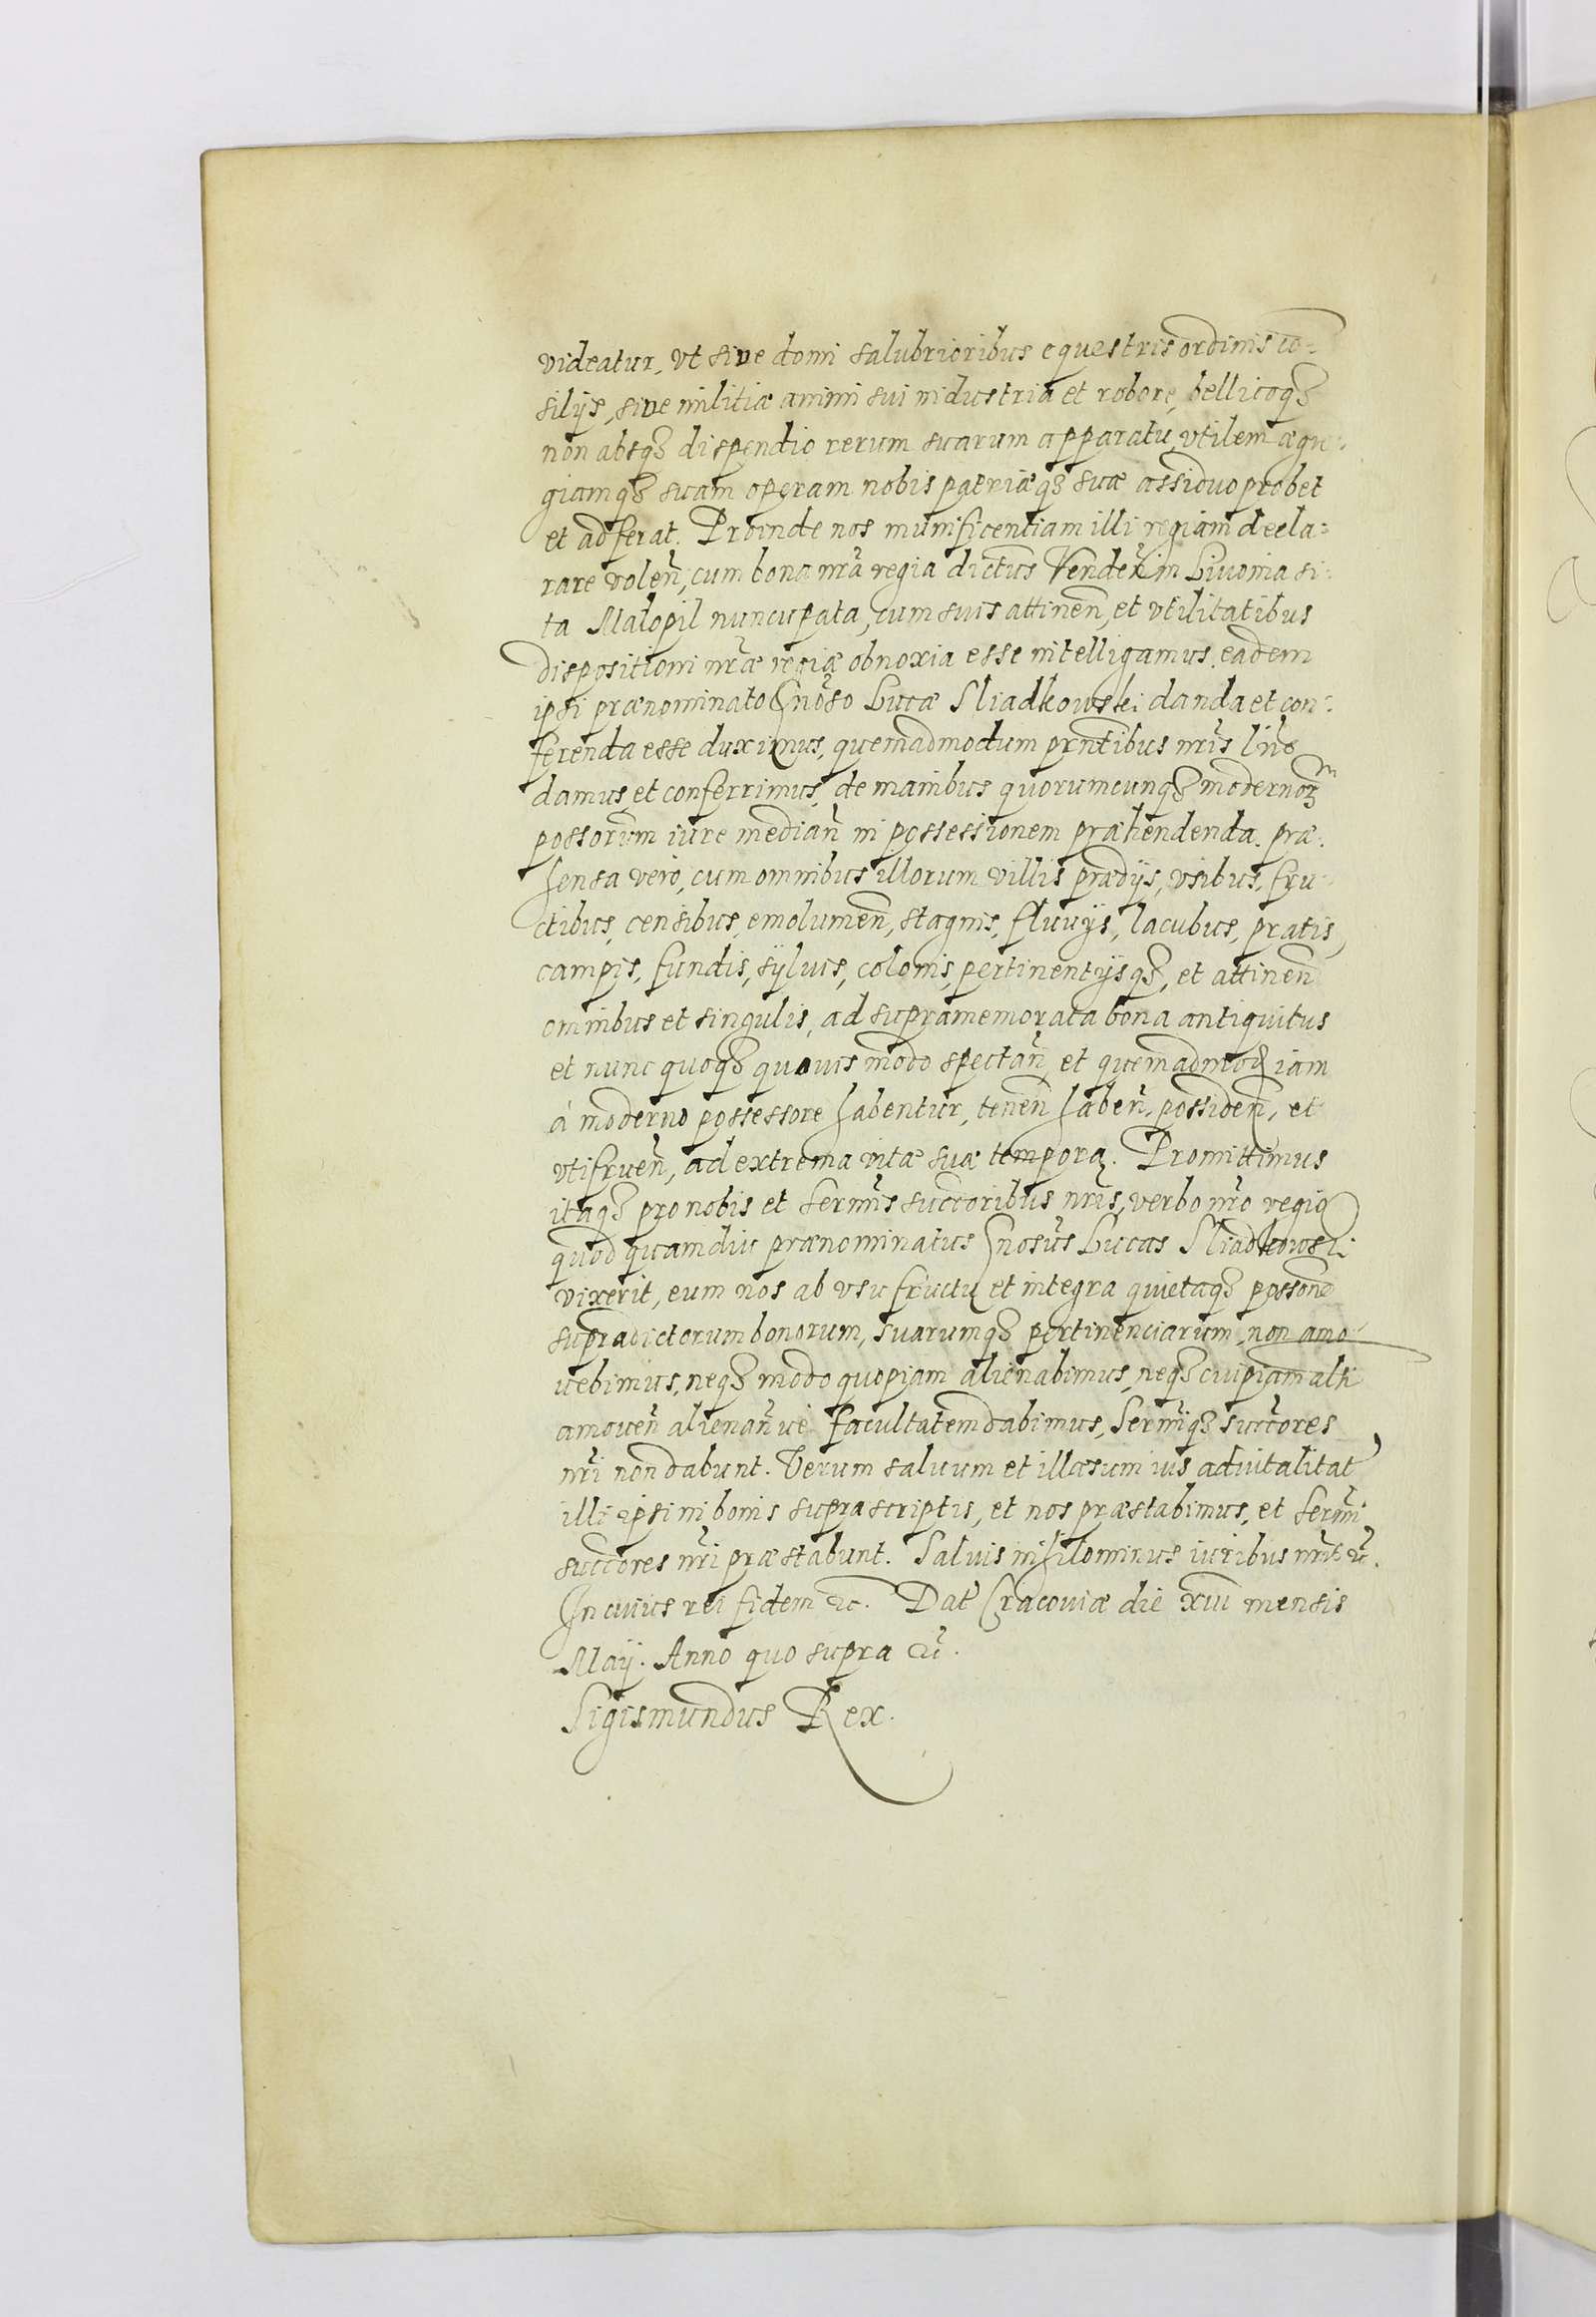 videatur, vt sive domi salubrioribus equestris ordinis co-
silijs, sive militiæ animi sui industria et robore, bellicoq3
non absq3 dispendio rerum suarum apparatu, vtilem ægre-
giamq3 suam operam nobis patriæq3 suæ assiduo probet
et adferat. Proinde nos munificentiam illi regiam decla-
rare volen̄, cum bona nr̄a regia dictus Venden̄ in Livonia si-
ta Malopil nuncupata, cum suis attinen̄, et vtilitatibus
dispositioni nr̄æ regiæ obnoxia esse intelligamus, eadem
ipsi prænominato Gnoso Lucæ Sliadkowski danda et con-
ferenda esse duximus, quemadmodum prn̄tibus nr̄is lr̄is
damus, et conferrimus, de manibus quorumcunq3 modernorū
possorum iure median̄ in possessionem præhendenda. præ-
hensa vero, cum omnibus illorum villis prædijs, vsibus, fru-
ctibus, censibus, emolumen̄, stagnis, fluvijs, lacubus, pratis,
campis, fundis, sÿluis, colonis, pertinentijsq3, et attinen̄
omnibus et singulis, ad supramemorata bona antiquitus
et nunc quoq3 quovis modo spectan̄, et quemadmod iam
à moderno possessore habentur, tenen̄ haben̄, possiden̄, et
vtifruen̄, ad extrema vitæ suæ tempora. Promittimus
itaq3 pro nobis et Serm̄is succoribus nr̄is, verbo nr̄o regio
quod quamdiu prænominatus Gnosus Lucas Sliadkowski
vixerit, eum nos ab vsu fructu et integra quietaq3 possone
supradictorum bonorum, suarumq3 pertinenciarum, non amo-
uebimus, neq3 modo quopiam alienabimus, neq3 cuipiam alti
amouen̄ alienan̄ ue facultatem dabimus, Serm̄iq3 succores
nr̄i non dabunt. Verum saluum et illæsum ius aduitalitat
illi ipsi in bonis suprascriptis, et nos præstabimus, et Serm̄i
succores nr̄i præstabunt. Salvis nihilominus iuribus nr̄is &c̄.
In cuius rei fidem &c. Dat Cracoviæ die xiii mensis
Maij. Anno quo supra &c̄.
Sigismundus Rex.